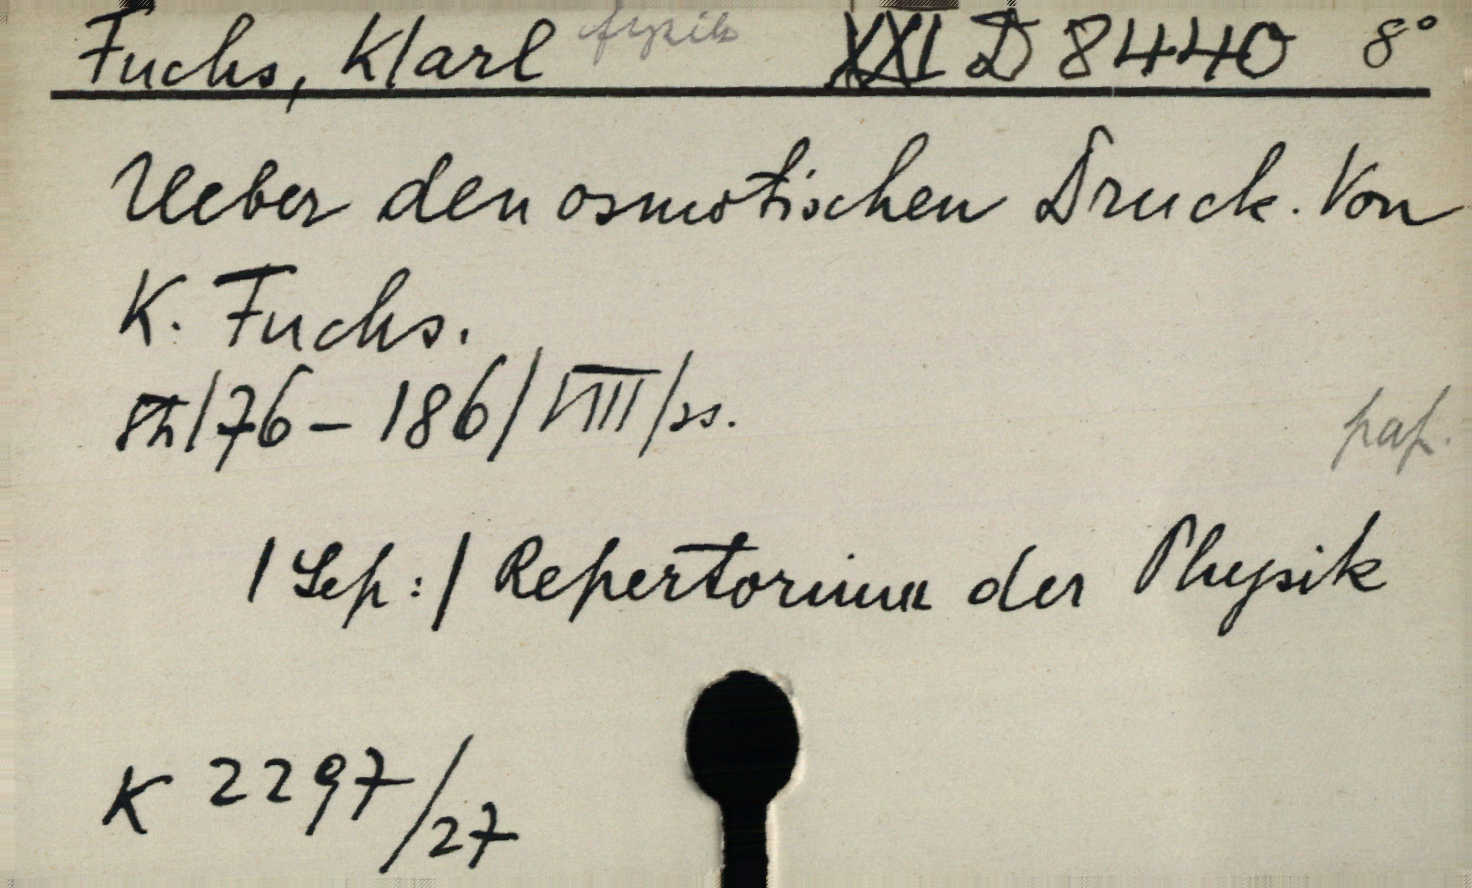 Fuchs, Karl fysik XXI D 8440 8°
Ueber den osmotischen Druck. Von
K. Fuchs.
176-186/VIII/ss.
pap.
/Sep:/ Repertorium der Physik
K 2297/27